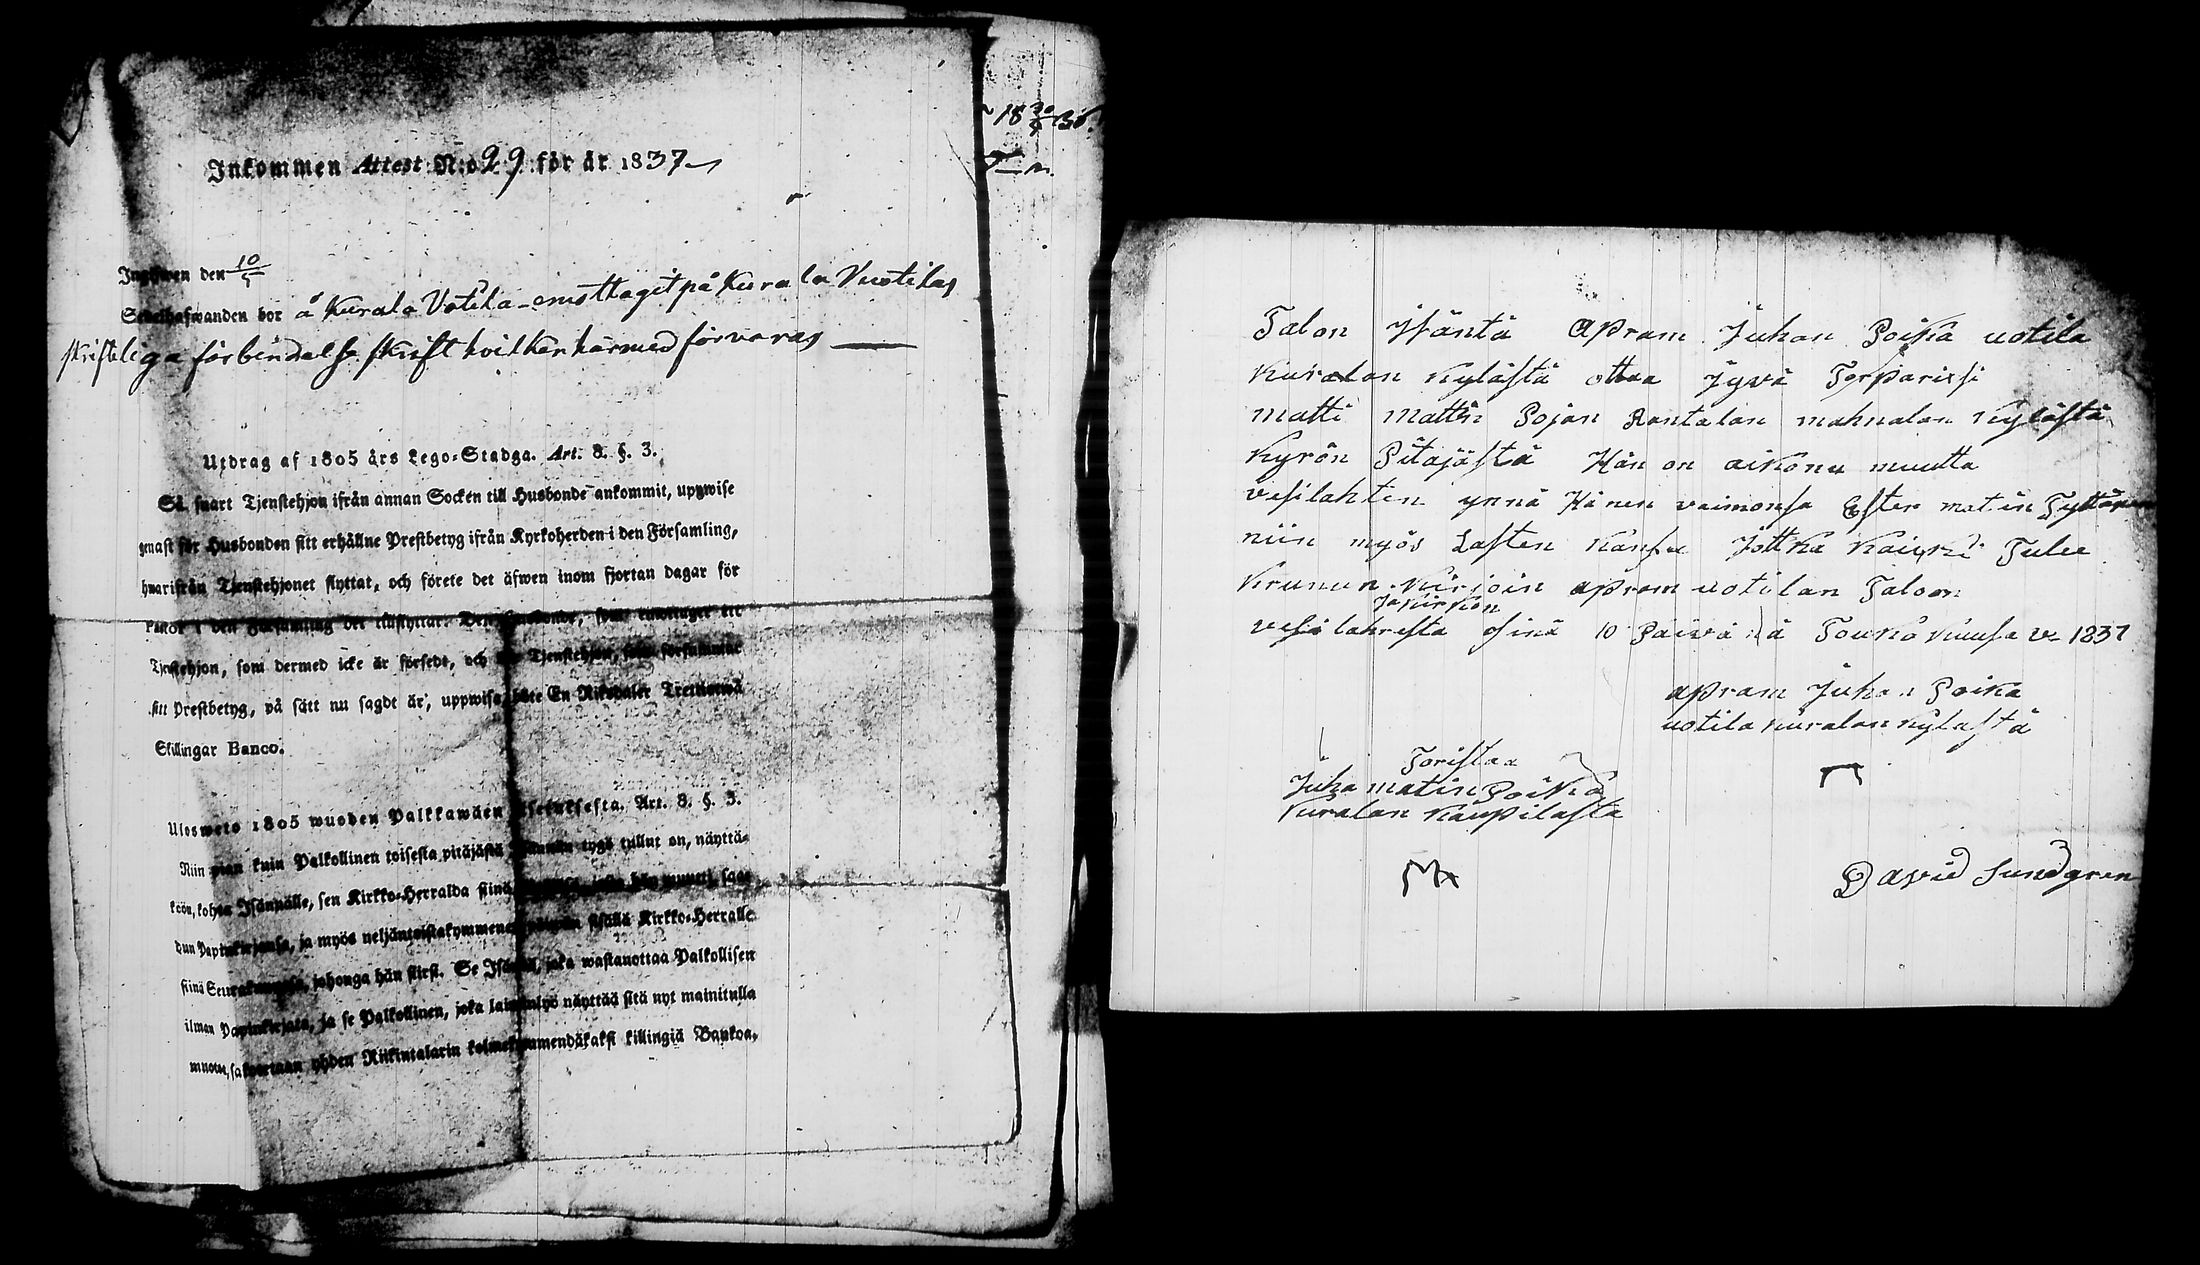 Inkommen Attest N:o 29 för år 1837
Ingifwen den 10/5
Sedelhafwanden bor å Kurala Votila emottagit på Kurala Vuotilas
skrifteliga förbindelse skrift hvilken härmed förvaras
Utdrag af 1805 års Lego-Stadga. Art. 8. §. 3.
Så snart Tjenstehjon ifrån annan Socken till Husbonde ankommit, uppwise
genast för Husbonden sitt erhållne Prestbetyg ifrån Kyrkoherden i den Församling,
hwarifrån Tjenstehjonet flyttat, och förete det äfwen inom fjortan dagar för
i den Församling det emottager ett
Tjenstehjon, som dermed icke är försedt, och Tjenstehjon, som försummar
sitt Prestbetyg, på sätt nu sagdt är, uppwisa, böte En Riksdaler Trettiotwå
Skillingar Banco.
Ulosweto 1805 wuoden Palkkawäen Asetuksesta. Art. 8. §. 3.
Niin pian kuin Palkollinen toisesta pitäjästä tygö tullut on, näyttä-
köön, kohta Isännälle, sen Kirkko-Herralda siinä saa-
dun Papinkirjansa, ja myös neljäntoistakymmenen päiwän sisällä Kirkko-Herralle
siinä Seurakunnasa, johonga hän siirsi. Se Isändä, joka wastanottaa Palkollisen
ilman Papinkirjata, ja se Palkollinen, joka laiminlyö näyttää sitä nyt mainitulla
muotoa, sakoitetaan yhden Riikintalarin kolmekymmendäkaksi killingiä Bankoa.
18 30/9 36.
Talon Isäntä Apram Juhan Poika uotila
Kuralan Kylästä ottaa Jyvä Torparixsi
matti mattin Pojan Rantalan mahnalan Kylästä
Kyrön Pitäjästä Hän on aikonu muutta
vesilahten ynnä Hänen vaimonsa Ester matin Tyttären
niin myös Lasten Kansa Jotka Kaicki Tulee
Krunun Kirjoin apram uotilan Taloon
ja Kirkon
vesilahresta sinä 10 Päivänä Touko Kuusa v 1837
apram Juhan Poika
uotila Kuralan Kylästä
Toristaa
Juha matin Poika
Kuralan Kaupilasta
David Sundgren